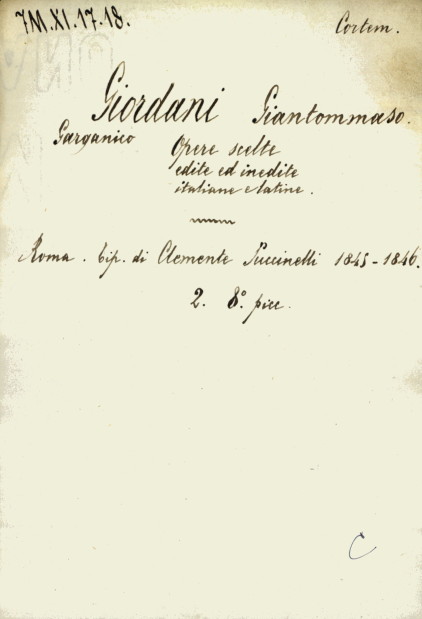 7M.XI.17.18.
Cortem.
Giordani Giantommaso.
Garganico Opere scelte
edite ed inedite
italiane e latine.
Roma. tip. di Clemente Puccinelli 1845-1846.
2. 8.º picc.
C